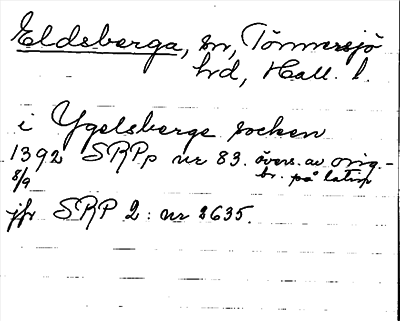 Eldsberga, sn, Tönnersjö
hd, Hall. l.
i Ygelsberge socken
1392 SRPp nr 83. övers. av orig.-
8/9 br. på latin
jfr SRP 2: nr 2635.